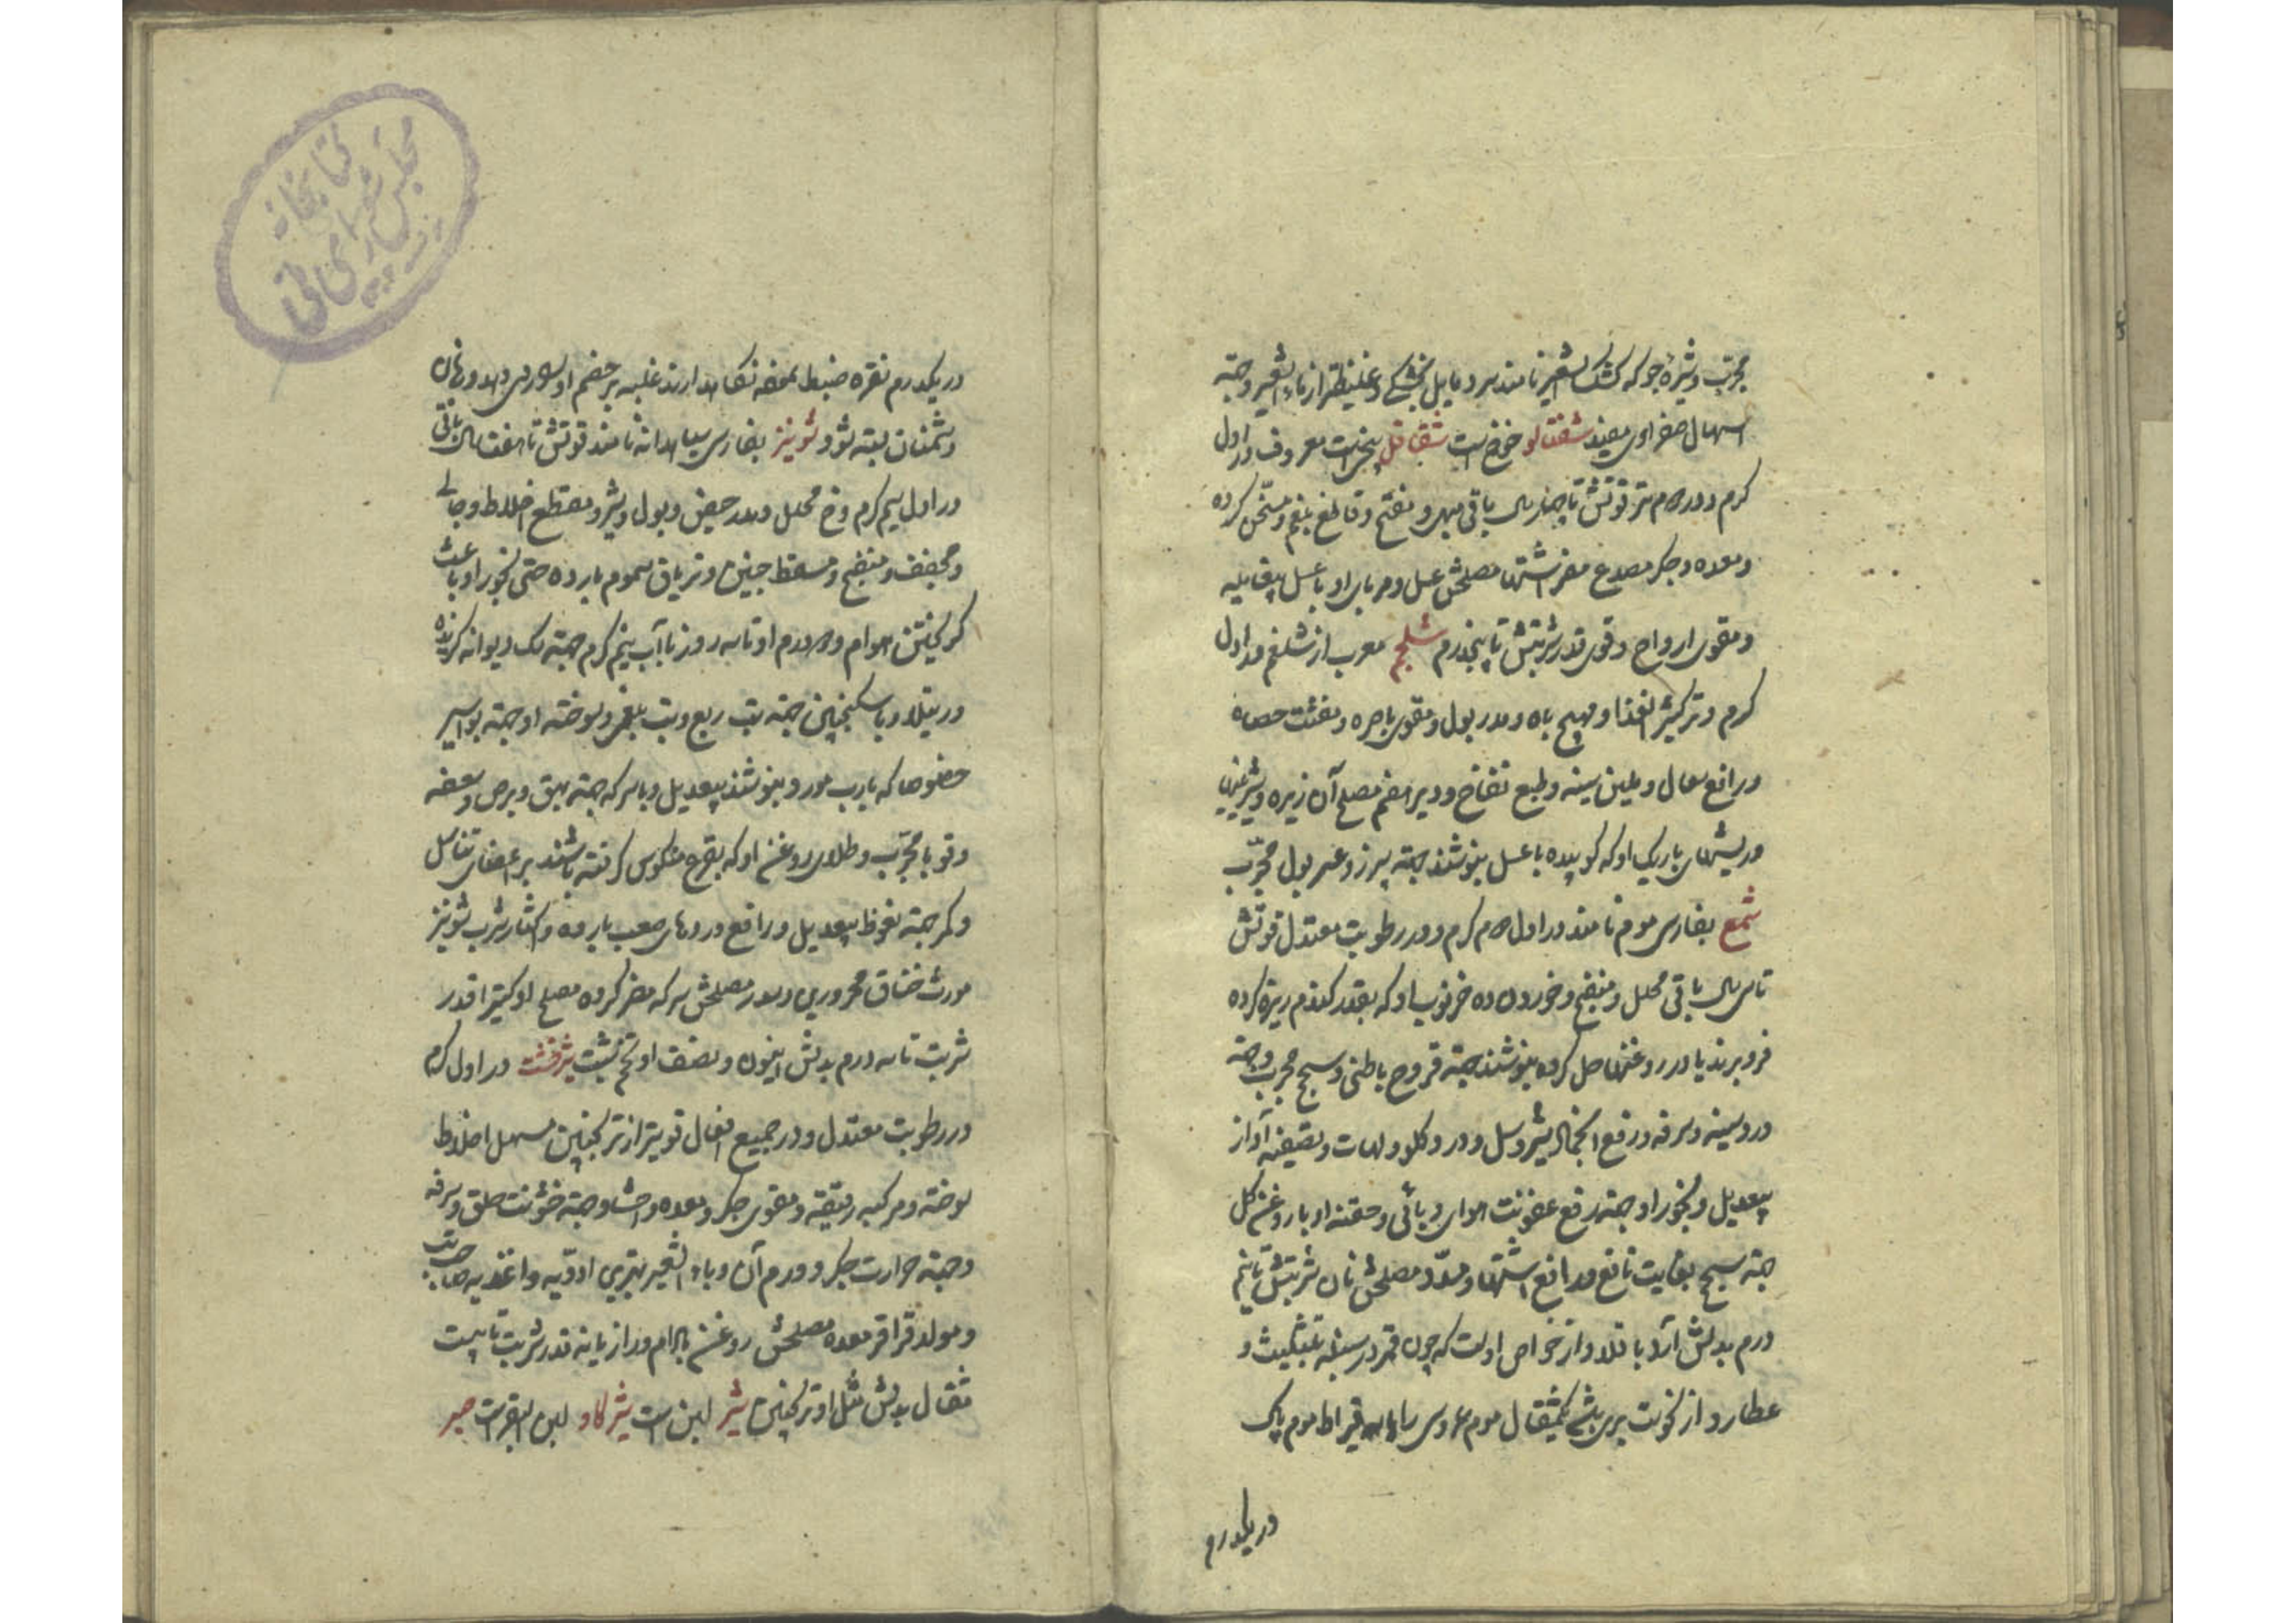 مجرّب و شیرهٔ جو که کشک الشعیر نامند سرد و مایل بخشکی و غلیظتر از ماء الشعیر و جهة
اسهال صفراوی مفید شفتالو خوخ است شقاقل بیخیست معروف در اول
کرم و در دوم تر قوتش تا چهار سال باقی مبهی و مفتح و قاطع بلغم و مسخن کرده
و معده و جکر مصدع مضر اشتها مصلحش عسل و مربای او با عسل بیقابله
و مقوی ارواح و قوی قدر شربتش تا پنجدرم شلجم معرب از شلغم در اول
کرم و تر کثیر الغذا و مهیج باه و مدر بول و مقوی باصره و مفتت حصاه
و رافع سعال و ملین سینه و طبع نفاخ و دیر هضم مصلح آن زیره و شیرینی
و ریشهای باریک او که کوبیده با عسل بنوشند جهة سپرز و عسر بول مجرّب
شمع بفارسی موم نامند در اول دوم کرم و در رطوبت معتدل قوتش
تا سی سال باقی محلل و منضج و خوردن ده خرنوب او که بقدر کندم ریزه کرده
فرو برند یا در روغنها حل کرده بنوشند جهة قروح باطنی و سحج مجرب و جهة
درد سینه و سرفه و رفع انجماد شیر و سل و درد کلو و لهات و تصفیه آواز
بیعدیل و بخور او جهة رفع عفونت هوای وبائی و حقنه او با روغن کل
جهة سحج بغایت نافع و رافع اشتها و مسدّد مصلحش نان شربتش تا نیم
درم بدلش آرد باقلا و از خواص اوست که چون قمر در سنبله بتثلیث و
عطارد از نحوست بری باشد یکمثقال موم عروسی را با سه قیراط موم پاک
در یکدرم
در یکدرم نقره ضبط نموده نکاهدارند غلبه بر خصم او را روی دهد و زبان
دشمنان بسته شود شونیز بفارسی سیاهدانه نامند قوتش تا هفت سال باقی
در اول سیم کرم و خ محلل و مدر حیض و بول و شیر و مقطع اخلاط و جالی
و مجفف و منضج و مسقط جنین و تریاق سموم بارده حتی بخور او باعث
کریختن هوام و دو درم او تا سه روز با آب نیم کرم جهة سک دیوانه کزیده
و رتیلا و با سکنجبین جهة تب ربع و تب بلغمی و سوخته او جهة بواسیر
خصوصا که با رب مورد بنوشند بیعدیل و با سرکه جهة بهق و برص و سعفه
و قوبا مجرّب و طلای روغن او که بقرع منکوس کرفته باشند بر اعضای تناسل
و کمر جهة نعوظ بیعدیل و رافع دردهای صعب بارده و اکثار شرب شونیز
مورث خناق محروری و سدر مصلحش سرکه مضر کرده مصلح او کتیرا قدر
شربت تا سه درم بدلش انیسون و نصف او تخم شبت شیرخشت در اول کرم
در رطوبت معتدل و در جمیع افعال قویتر از ترنجبین مسهل اخلاط
سوخته و مرکبه رقیقه و مقوی جکر و معده و احشا و جهة خشونت حلق و سرفه
و جهة حرارت جکر و ورم آن و با ماء الشعیر بهترین ادویه و اغذیه صاحب تب
و مولد قراقر معده مصلحش روغن بادام و رازیانه قدر شربت تا بیست
مثقال بدلش مثل او ترنجبین شیر لبن است شیر کاو لبن البقر است صبر
کتابخانه
مجلس شورای ملی